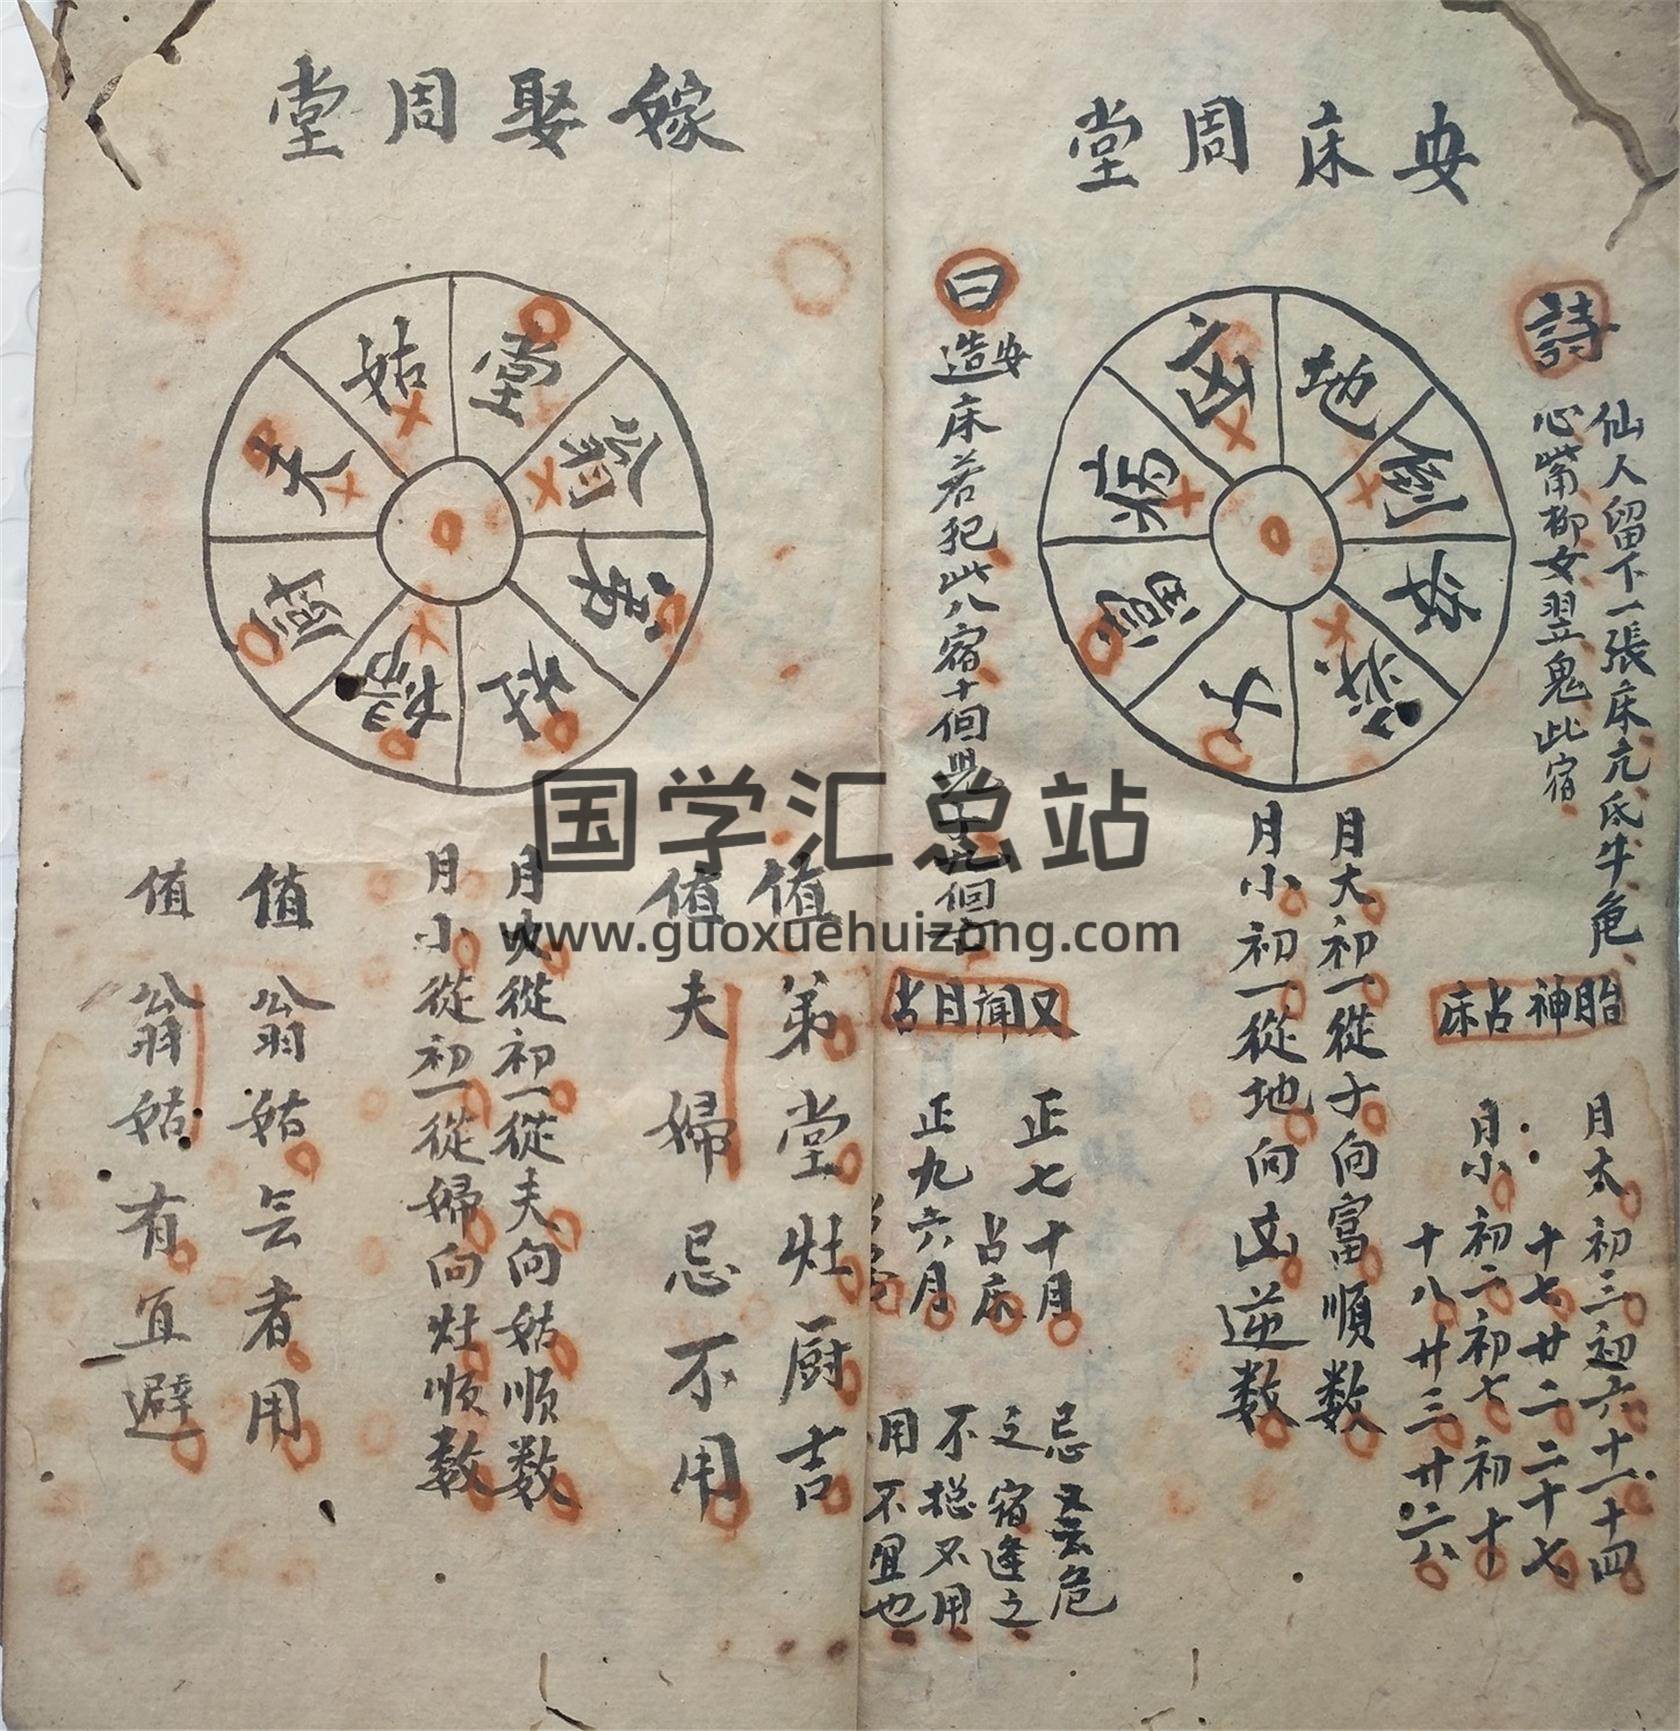 安床周堂
詩
仙人留下一張床亢氐牛危
心觜柳女翌鬼此宿
曰
安
造床若犯此八宿十個見
地
凶
病
富
子
月大初一從子向富順数
月小初一從地向凶逆数
胎神占床
月大初三初六十一十四
十七廿二二十七
月小初二初七初十
十八廿三廿六
又聞月占
正七十月
占床
正九六月
忌
危
之宿逢之
不
不用
用不宜也
嫁娶周堂
堂
翁
弟
灶
婦
厨
夫
姑
值弟堂灶厨吉
值夫婦忌不用
月大從初一從夫向姑順数
月小從初一從婦向灶順数
值翁姑亡者用
值翁姑有宜避
国学汇总站
www.guoxuehuizong.com